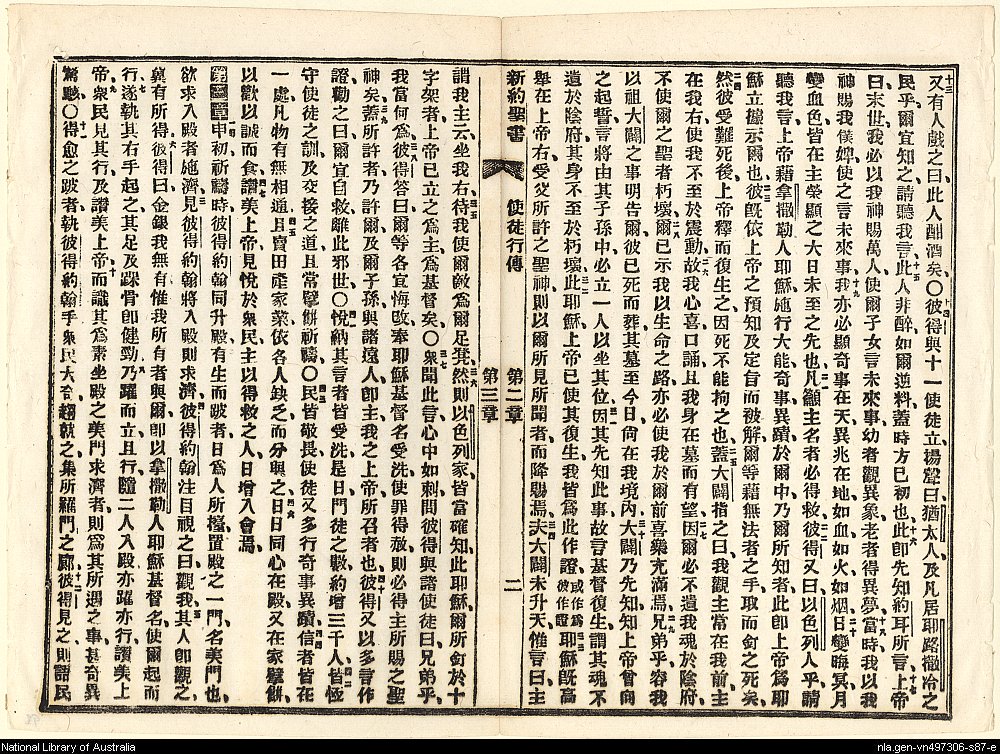 又有人戲之曰此人酣酒矣〇彼得與十一使徒立揚聲曰猶太人及凡居耶路撒冷之
民乎爾宜知之請聽我言此人非醉如爾逆料蓋時方巳初也此即先知約耳所言上帝
曰末世我必以我神賜萬人使爾子女言未來事幼者觀異象老者得異夢當時我以我
神賜我僕婢使之言未來事我亦必顯奇事在天異兆在地如血如火如烟日變晦冥月
變血色皆在主榮顯之大日未至之先也凡籲主名者必得救彼得又曰以色列人乎請
聽我言上帝藉拿撒勒人耶穌施行大能奇事異蹟於爾中乃爾所知者此即上帝爲耶
穌立據示爾也彼旣依上帝之預知及定旨而被解爾等藉無法者之手取而釘之死矣
然彼受難死後上帝釋而復生之因死不能拘之也蓋大闢指之曰我觀主常在我前主
在我右使我不至於震動故我心喜口誦且我身在墓而有望因爾必不遺我魂於陰府
不使爾之聖者朽壞爾已示我以生命之路亦必使我於爾前喜樂充滿焉兄弟乎容我
以祖大闢之事明告爾彼已死而葬其墓至今日尙在我境內大闢乃先知知上帝曾向
之起誓言將由其子孫中必立一人以坐其位因其先知此事故言基督復生謂其魂不
遺於陰府其身不至於朽壞此耶穌上帝已使其復生我皆爲此作證或作爲彼作證耶穌旣高
舉在上帝右受父所許之聖神則以爾所見所聞者而降賜焉夫大闢未升天惟言曰主
新約聖書 使徒行傳 第二章 第三章 二
謂我主云坐我右待我使爾敵爲爾足凳然則以色列家皆當確知此耶穌爾所釘於十
字架者上帝已立之爲主爲基督矣〇衆聞此言心中如刺問彼得與諸使徒曰兄弟乎
我當何爲彼得答曰爾等各宜悔改奉耶穌基督名受洗使罪得赦則必得主所賜之聖
神矣蓋所許者乃許爾及爾子孫與諸遠人即主我之上帝所召者也彼得又以多言作
證勸之曰爾宜自救離此邪世〇悅納其言者皆受洗是日門徒之數約增三千人皆恆
守使徒之訓及交接之道且常擘餅祈禱〇民皆敬畏使徒又多行奇事異蹟信者皆在
一處凡物有無相通且賣田產家業依各人缺乏而分與之日日同心在殿又在家擘餅
以歡以誠而食讚美上帝見悅於衆民主以得救之人日增入會焉
第三章申初祈禱時彼得約翰同升殿有生而跛者日爲人所擡置殿之一門名美門也
欲求入殿者施濟見彼得約翰將入殿則求濟彼得約翰注目視之曰觀我其人即觀之
冀有所得彼得曰金銀我無有惟我所有者與爾即以拿撒勒人耶穌基督名使爾起而
行遂執其右手起之其足及踝骨即健勁乃躍而立且行隨二人入殿亦躍亦行讚美上
帝衆民見其行及讚美上帝而識其爲素坐殿之美門求濟者則爲其所遇之事甚奇異
驚駭〇得愈之跛者執彼得約翰手衆民大奇趨就之集所羅門之廊彼得見之則語民
National Library of Australia
nla.gen-vn497306-s87-e